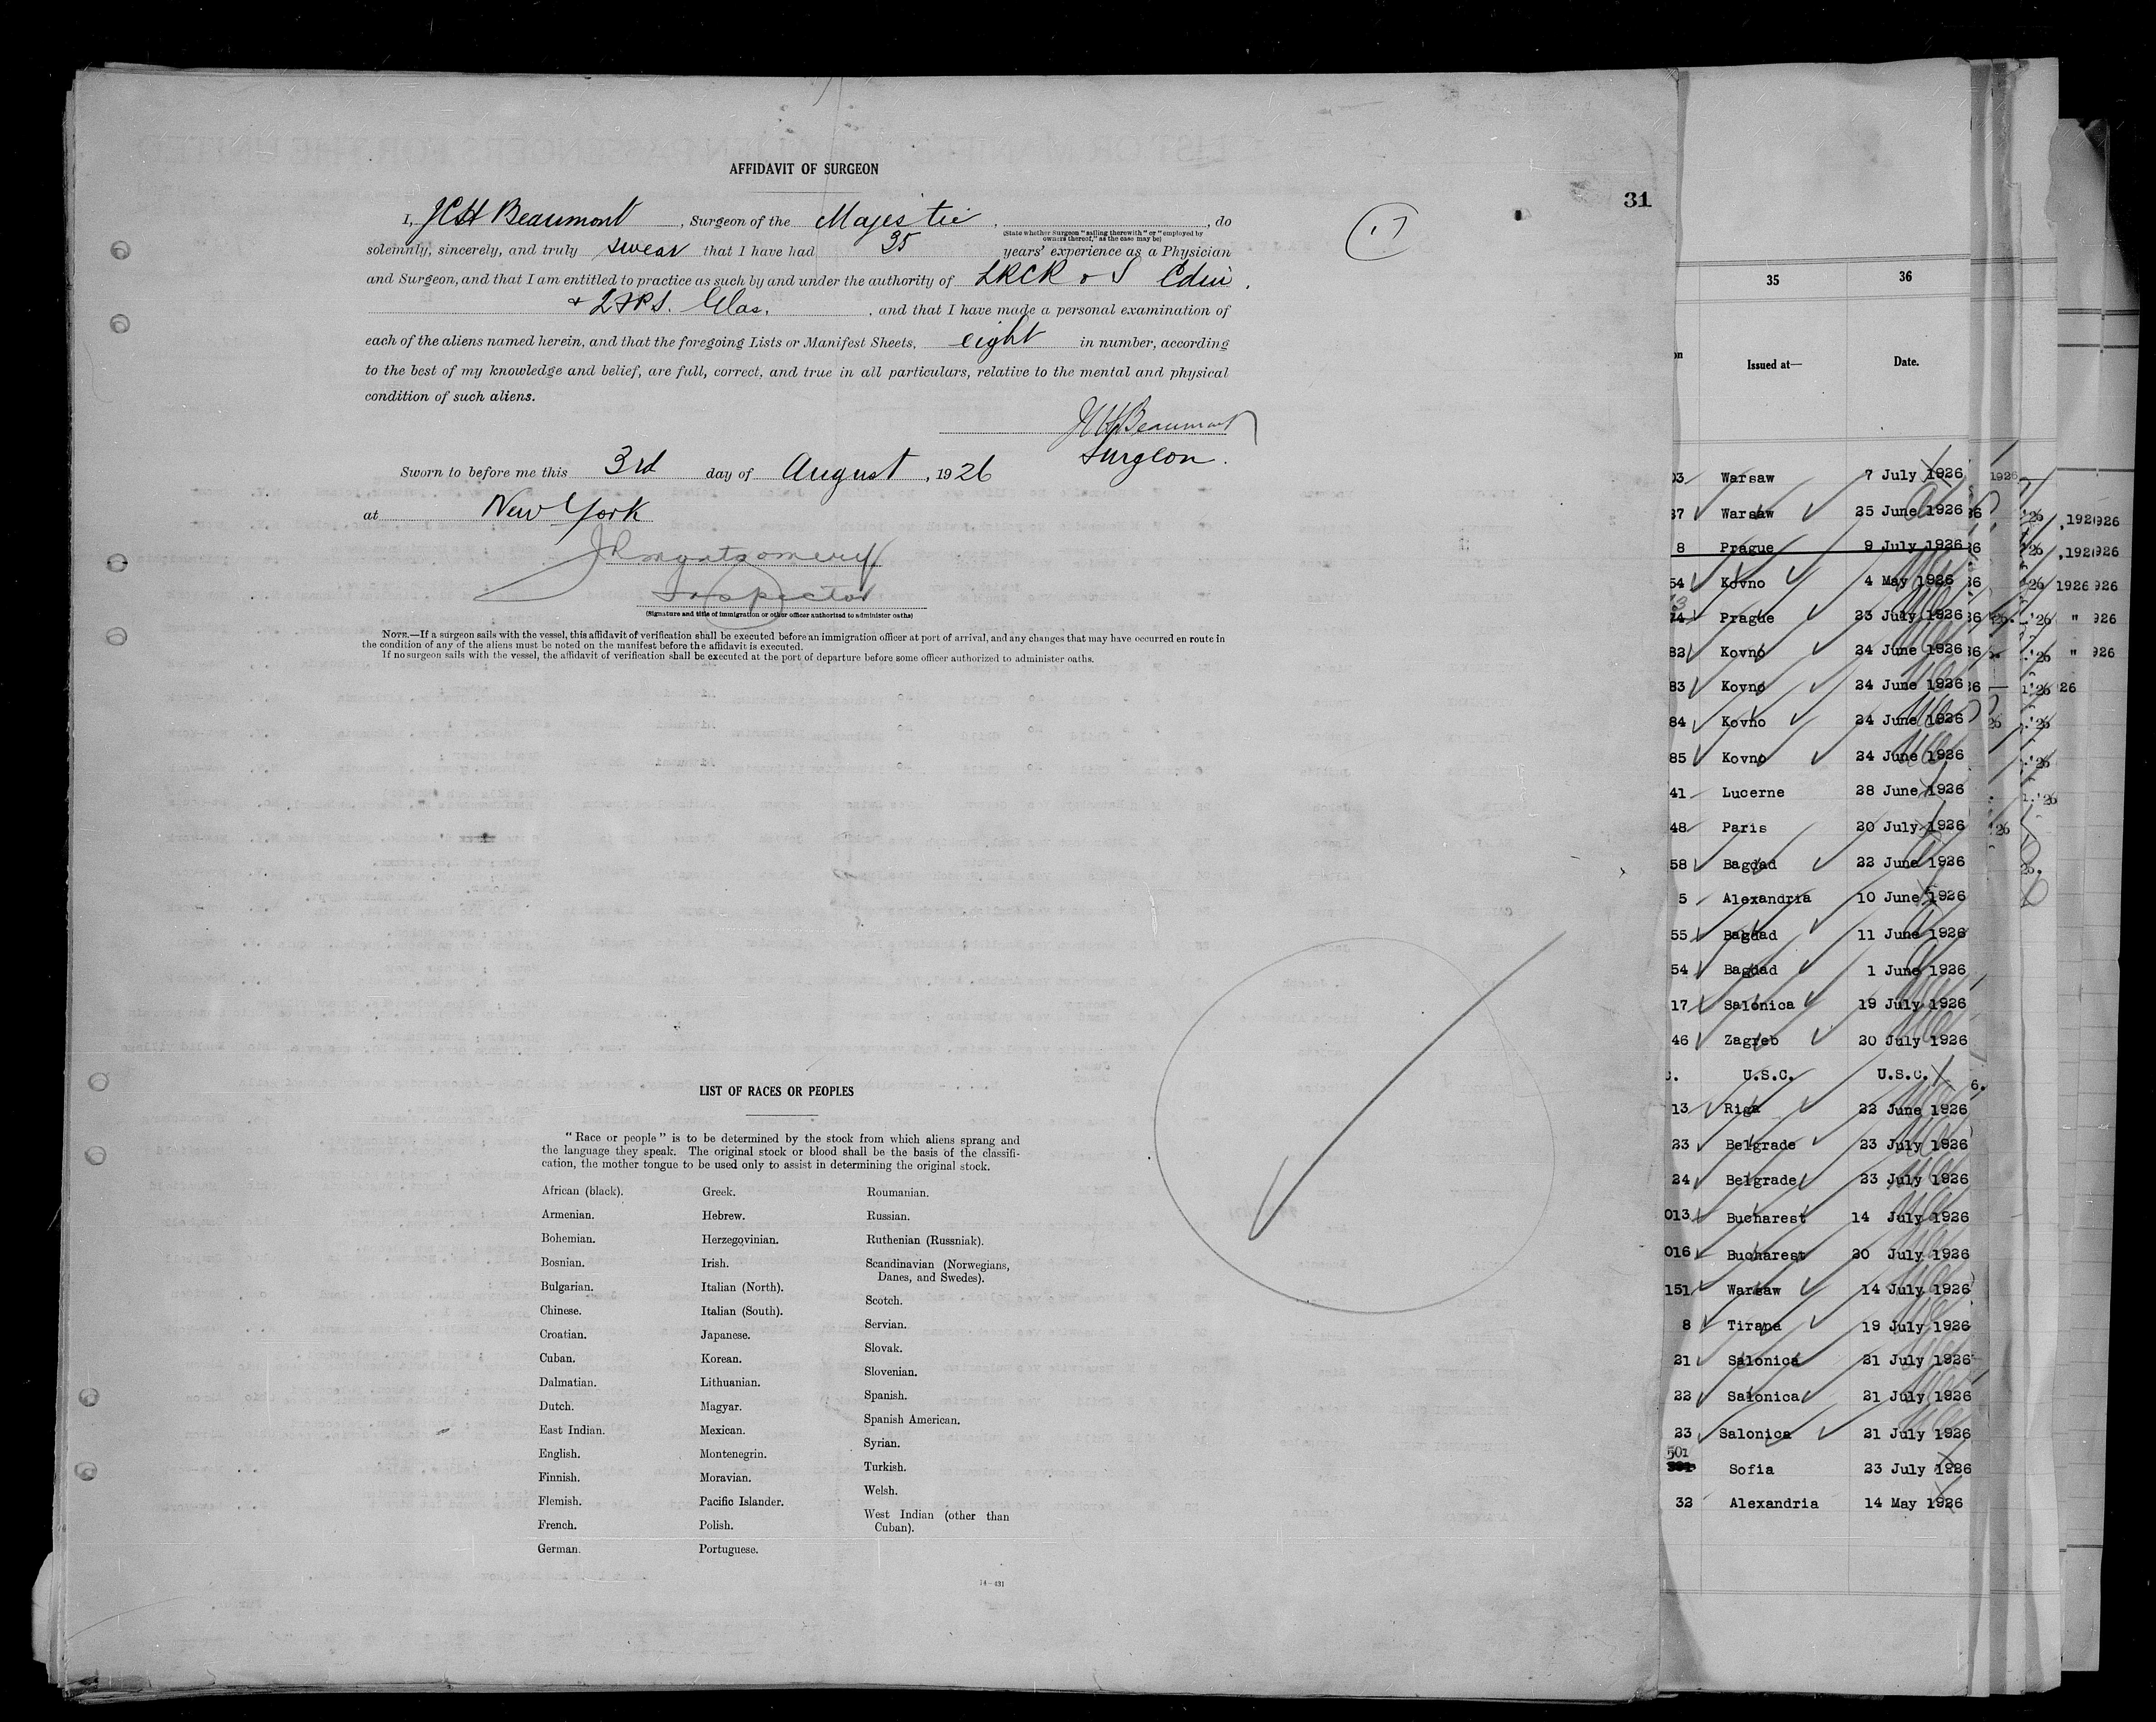 AFFIDAVIT OF SURGEON
31
I, JCH Beaumont, Surgeon of the Majestic, , do
(State whether Surgeon "sailing therewith" or "employed by
owners thereof," as the case may be)
solemnly, sincerely, and truly swear that I have had 35 years' experience as a Physician
and Surgeon, and that I am entitled to practice as such by and under the authority of LRCP & S Edin.
+ LFPS. Glas. , and that I have made a personal examination of
each of the aliens named herein, and that the foregoing Lists or Manifest Sheets, eight in number, according
to the best of my knowledge and belief, are full, correct, and true in all particulars, relative to the mental and physical
condition of such aliens.
JCH Beaumont
Surgeon.
Sworn to before me this 3rd day of August, 1926
at New York
JR Montgomery
Inspector
(Signature and title of immigration or other officer authorized to administer oaths)
NOTE.—If a surgeon sails with the vessel, this affidavit of verification shall be executed before an immigration officer at port of arrival, and any changes that may have occurred en route in
the condition of any of the aliens must be noted on the manifest before the affidavit is executed.
If no surgeon sails with the vessel, the affidavit of verification shall be executed at the port of departure before some officer authorized to administer oaths.
LIST OF RACES OR PEOPLES
"Race or people" is to be determined by the stock from which aliens sprang and
the language they speak. The original stock or blood shall be the basis of the classifi-
cation, the mother tongue to be used only to assist in determining the original stock.
African (black).
Armenian.
Bohemian.
Bosnian.
Bulgarian.
Chinese.
Croatian.
Cuban.
Dalmatian.
Dutch.
East Indian.
English.
Finnish.
Flemish.
French.
German.
Greek.
Hebrew.
Herzegovinian.
Irish.
Italian (North).
Italian (South).
Japanese.
Korean.
Lithuanian.
Magyar.
Mexican.
Montenegrin.
Moravian.
Pacific Islander.
Polish.
Portuguese.
Roumanian.
Russian.
Ruthenian (Russniak).
Scandinavian (Norwegians,
Danes, and Swedes).
Scotch.
Servian.
Slovak.
Slovenian.
Spanish.
Spanish American.
Syrian.
Turkish.
Welsh.
West Indian (other than
Cuban).
14—431
35 36
Issued at— Date.
03 Warsaw 7 July 1926
37 Warsaw 25 June 1926
8 Prague 9 July 1926
54 Kovno 4 May 1926
74 Prague 23 July 1926
82 Kovno 24 June 1926
83 Kovno 24 June 1926
84 Kovno 24 June 1926
85 Kovno 24 June 1926
41 Lucerne 28 June 1926
48 Paris 20 July 1926
58 Bagdad 22 June 1926
5 Alexandria 10 June 1926
55 Bagdad 11 June 1926
54 Bagdad 1 June 1926
17 Salonica 19 July 1926
46 Zagreb 20 July 1926
U.S.C. U.S.C.
13 Riga 22 June 1926
23 Belgrade 23 July 1926
24 Belgrade 23 July 1926
013 Bucharest 14 July 1926
016 Bucharest 20 July 1926
151 Warsaw 14 July 1926
8 Tirana 19 July 1926
21 Salonica 21 July 1926
22 Salonica 21 July 1926
23 Salonica 21 July 1926
501 Sofia 23 July 1926
32 Alexandria 14 May 1926